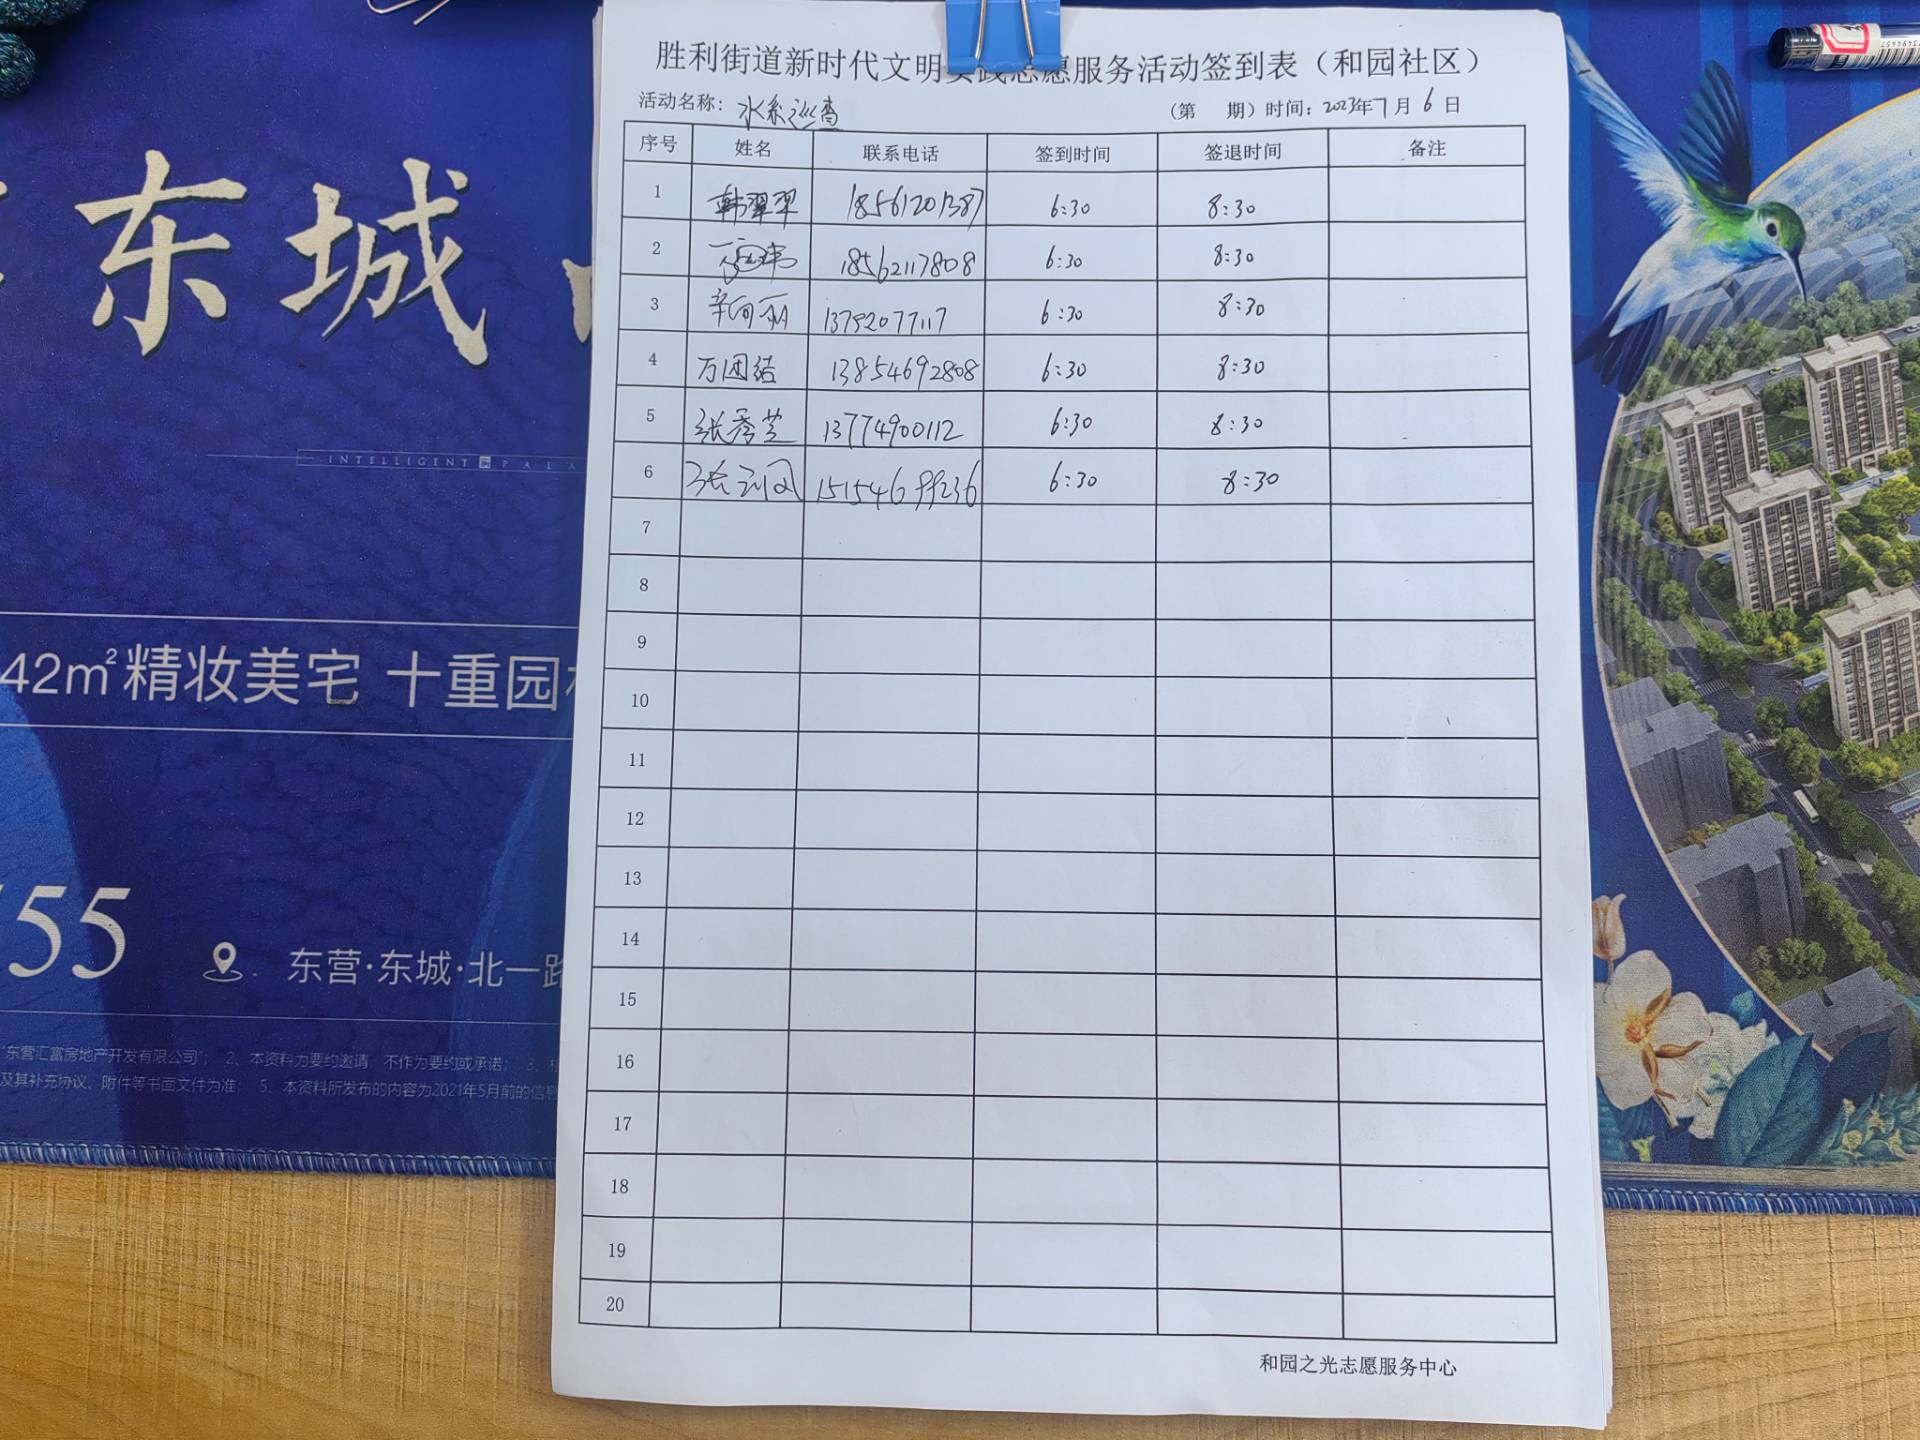 胜利街道新时代文明实践志愿服务活动签到表（和园社区）
活动名称：水系巡查
（第 期）时间：2023年7月6日
序号 姓名 联系电话 签到时间 签退时间 备注
1 韩翠翠 18561201387 6:30 8:30
2 18562117808 6:30 8:30
3 辛向丽 13792077117 6:30 8:30
4 万团结 13854692808 6:30 8:30
5 张秀芝 13774900112 6:30 8:30
6 6:30 8:30
7
8
9
10
11
12
13
14
15
16
17
18
19
20
和园之光志愿服务中心
东城
INTELLIGENT PALA
42㎡精妆美宅 十重园
55
东营·东城·北一路
"东营汇富房地产开发有限公司"； 2、本资料为要约邀请，不作为要约或承诺； 3、
及其补充协议、附件等书面文件为准； 5、本资料所发布的内容为2021年5月前的信息